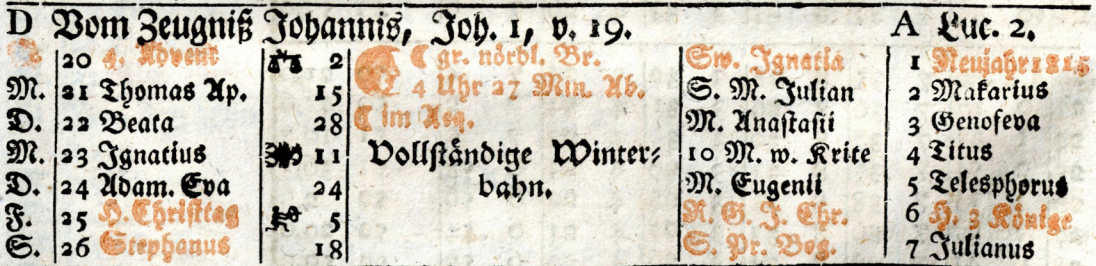 D Vom Zeugniß Johannis, Joh. 1, v. 19. A Luc. 2.
20 4. Advent 2 gr. nördl. Br. Sw. Ignatia 1 Neujahr 1815
M. 21 Thomas Ap. 15 4 Uhr 27 Min. Ab. S. M. Julian 2 Makarius
D. 22 Beata 28 im Aeq. M. Anastasii 3 Genofeva
M. 23 Ignatius 11 Vollständige Winter- 10 M. w. Krite 4 Titus
D. 24 Adam. Eva 24 bahn. M. Eugenii 5 Telesphorus
F. 25 H. Christtag 5 R. G. J. Chr. 6 H. 3 Könige
S. 26 Stephanus 18 S. Pr. Bog. 7 Julianus